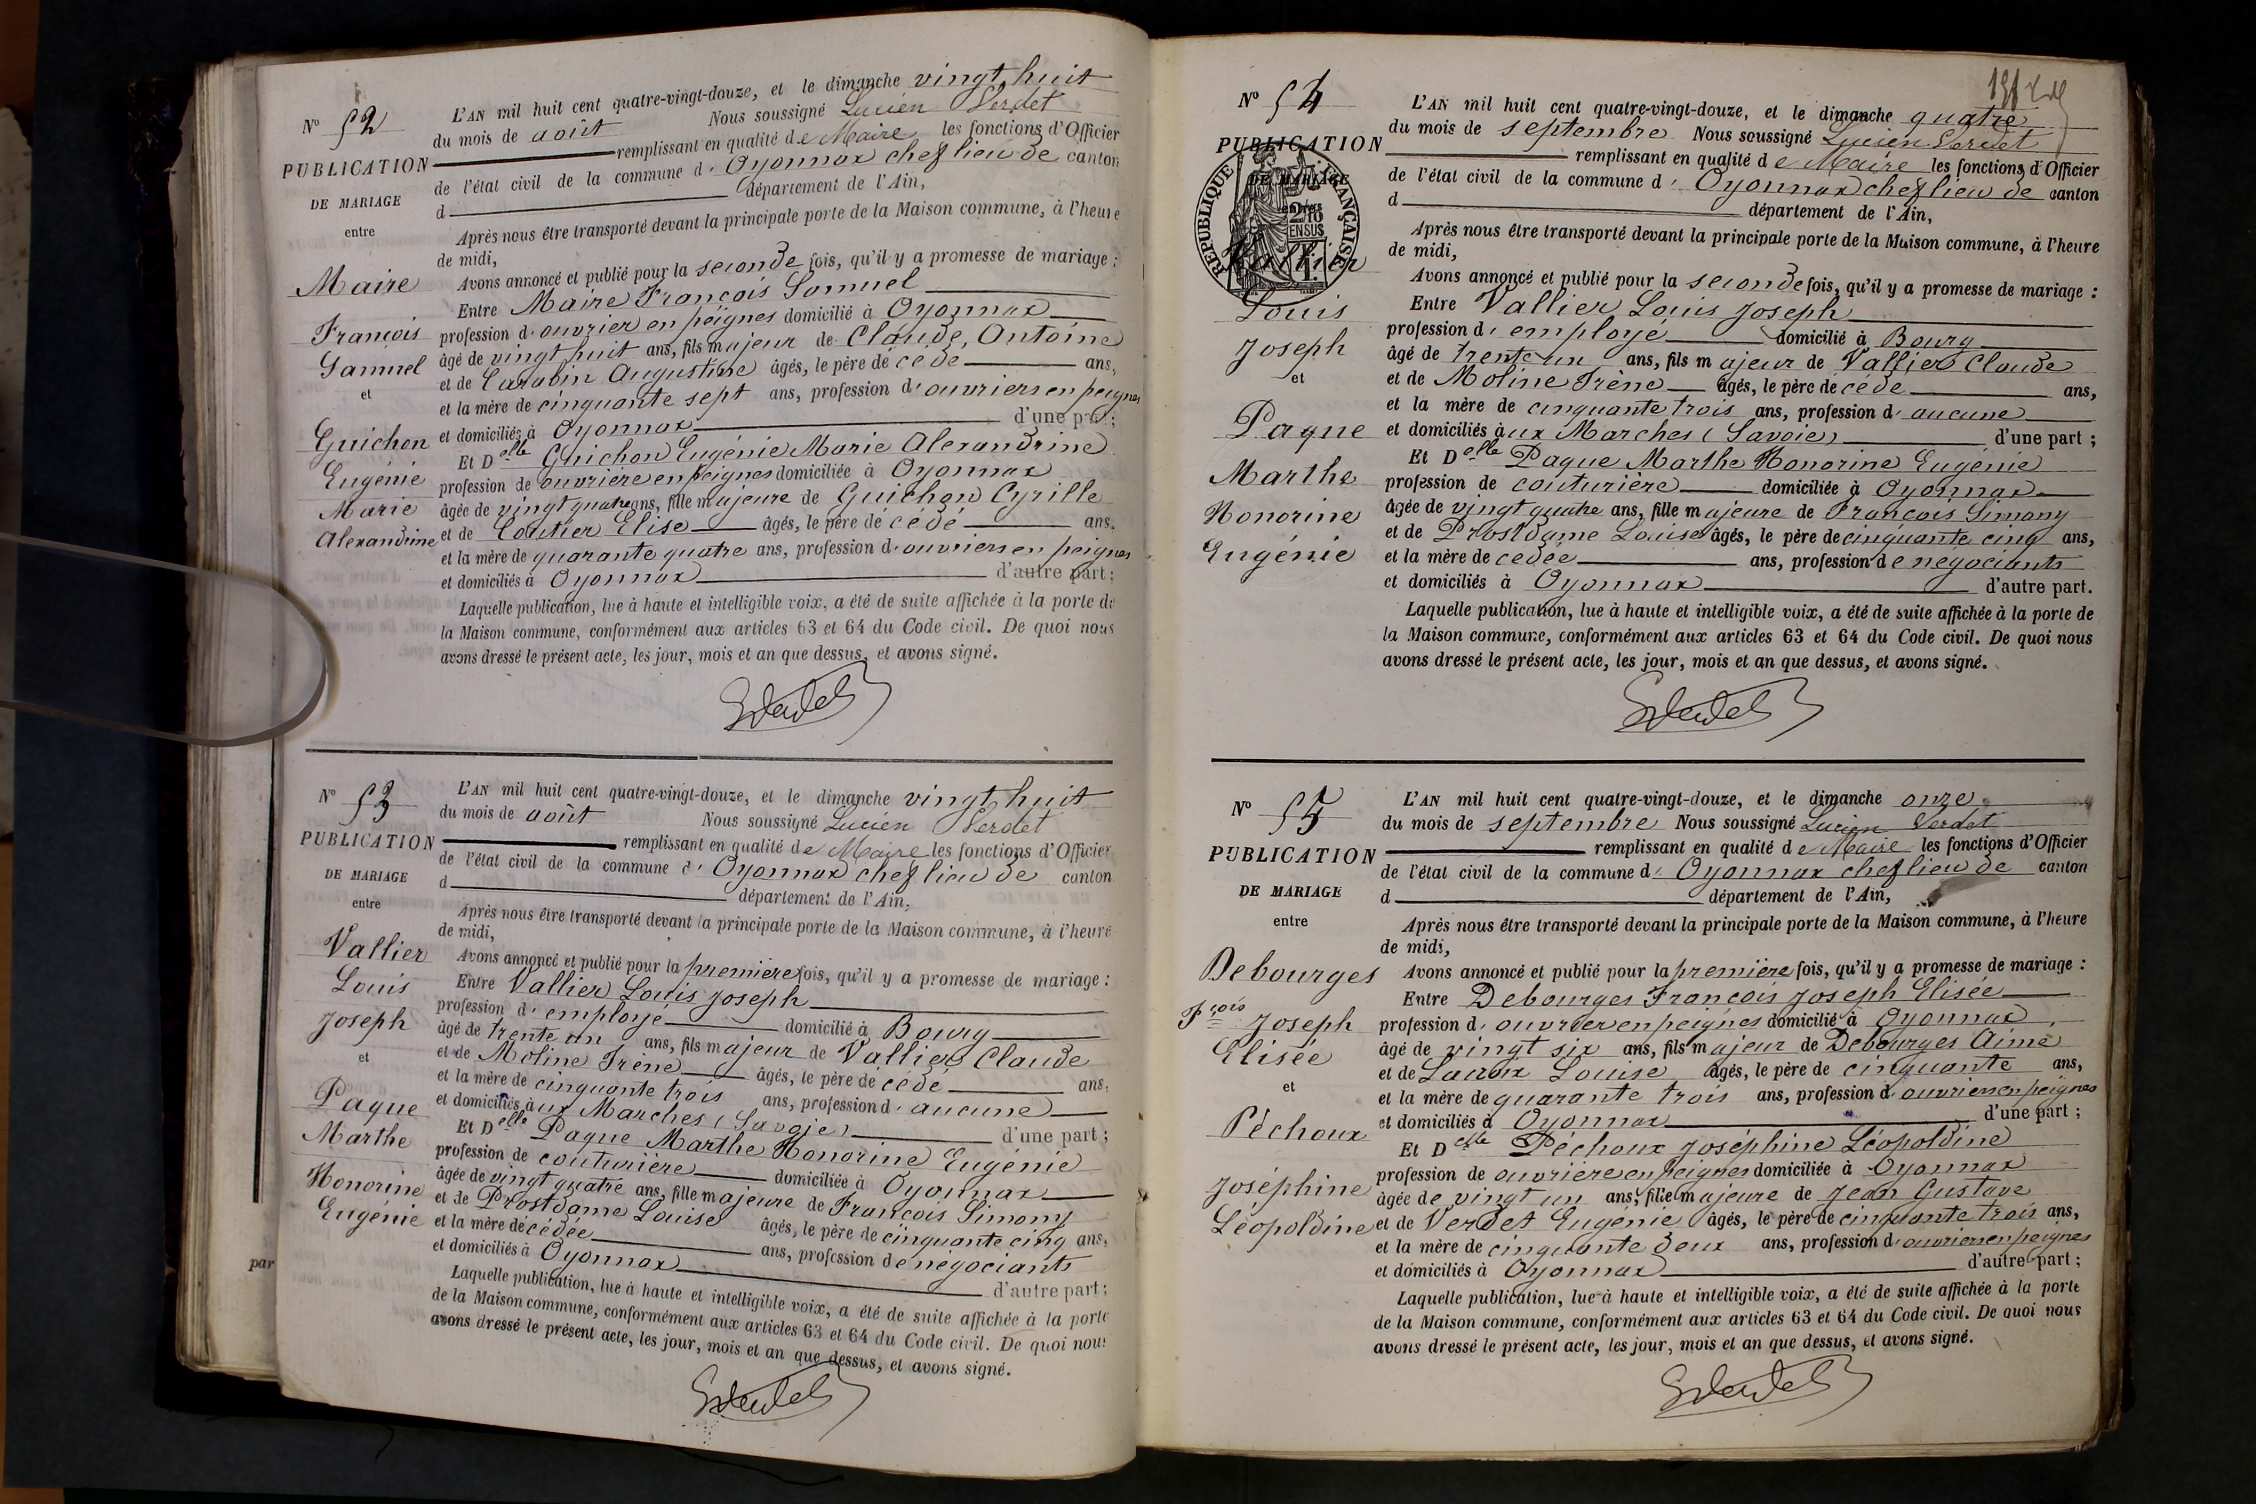 N° 52
PUBLICATION
DE MARIAGE
entre
Maire
François
Samuel
et
Guichon
Eugénie
Marie
Alexandrine
L'AN mil huit cent quatre-vingt-douze, et le dimanche vingt huit
du mois de août Nous soussigné Lucien Verdet
remplissant en qualité de Maire les fonctions d'Officier
de l'état civil de la commune d'Oyonnax chef lieu de canton
d département de l'Ain,
Après nous être transporté devant la principale porte de la Maison commune, à l'heure
de midi,
Avons annoncé et publié pour la seconde fois, qu'il y a promesse de mariage :
Entre Maire François Samuel
profession d'ouvrier en peignes domicilié à Oyonnax
âgé de vingt huit ans, fils majeur de Claude, Antoine
et de Carabin Augustine âgés, le père décédé ans,
et la mère de cinquante sept ans, profession d'ouvriers en peignes
et domiciliés à Oyonnax d'une part ;
Et Delle Guichon Eugénie Marie Alexandrine
profession de ouvrière en peignes domiciliée à Oyonnax
âgée de vingt quatre ans, fille majeure de Guichon Cyrille
et de Coutier Elise âgés, le père décédé ans.
et la mère de quarante quatre ans, profession d'ouvriers en peignes
et domiciliés à Oyonnax d'autre part ;
Laquelle publication, lue à haute et intelligible voix, a été de suite affichée à la porte de
la Maison commune, conformément aux articles 63 et 64 du Code civil. De quoi nous
avons dressé le présent acte, les jour, mois et an que dessus, et avons signé.
N° 53
PUBLICATION
DE MARIAGE
entre
Vallier
Louis
Joseph
et
Paque
Marthe
Honorine
Eugénie
L'AN mil huit cent quatre-vingt-douze, et le dimanche vingt huit
du mois de août Nous soussigné Lucien Verdet
remplissant en qualité de Maire les fonctions d'Officier
de l'état civil de la commune d'Oyonnax chef lieu de canton
d département de l'Ain,
Après nous être transporté devant la principale porte de la Maison commune, à l'heure
de midi,
Avons annoncé et publié pour la première fois, qu'il y a promesse de mariage :
Entre Vallier Louis Joseph
profession d'employé domicilié à Bourg
âgé de trente un ans, fils majeur de Vallier Claude
et de Moline Irène âgés, le père décédé ans,
et la mère de cinquante trois ans, profession d'aucune
et domiciliés aux Marches (Savoie) d'une part ;
Et Delle Paque Marthe Honorine Eugénie
profession de couturière domiciliée à Oyonnax
âgée de vingt quatre ans, fille majeure de François Simony
et de Prostdame Louise âgés, le père de cinquante cinq ans,
et la mère décédée ans, profession de négociants
et domiciliés à Oyonnax d'autre part ;
Laquelle publication, lue à haute et intelligible voix, a été de suite affichée à la porte
de la Maison commune, conformément aux articles 63 et 64 du Code civil. De quoi nous
avons dressé le présent acte, les jour, mois et an que dessus, et avons signé.
par
N° 54
PUBLICATION
DE MARIAGE
RÉPUBLIQUE FRANÇAISE
2/10
EN SUS
Vallier
Louis
Joseph
et
Paque
Marthe
Honorine
Eugénie
L'AN mil huit cent quatre-vingt-douze, et le dimanche quatre
du mois de septembre Nous soussigné Lucien Verdet
remplissant en qualité de Maire les fonctions d'Officier
de l'état civil de la commune d'Oyonnax chef lieu de canton
d département de l'Ain,
Après nous être transporté devant la principale porte de la Maison commune, à l'heure
de midi,
Avons annoncé et publié pour la seconde fois, qu'il y a promesse de mariage :
Entre Vallier Louis Joseph
profession d'employé domicilié à Bourg
âgé de trente un ans, fils majeur de Vallier Claude
et de Moline Irène âgés, le père décédé ans,
et la mère de cinquante trois ans, profession d'aucune
et domiciliés aux Marches (Savoie) d'une part ;
Et Delle Paque Marthe Honorine Eugénie
profession de couturière domiciliée à Oyonnax
âgée de vingt quatre ans, fille majeure de François Simony
et de Prostdame Louise âgés, le père de cinquante cinq ans,
et la mère décédée ans, profession de négociants
et domiciliés à Oyonnax d'autre part.
Laquelle publication, lue à haute et intelligible voix, a été de suite affichée à la porte de
la Maison commune, conformément aux articles 63 et 64 du Code civil. De quoi nous
avons dressé le présent acte, les jour, mois et an que dessus, et avons signé.
N° 55
PUBLICATION
DE MARIAGE
entre
Debourges
Fçois Joseph
Elisée
et
Péchoux
Joséphine
Léopoldine
L'AN mil huit cent quatre-vingt-douze, et le dimanche onze
du mois de septembre Nous soussigné Lucien Verdet
remplissant en qualité de Maire les fonctions d'Officier
de l'état civil de la commune d'Oyonnax chef lieu de canton
d département de l'Ain,
Après nous être transporté devant la principale porte de la Maison commune, à l'heure
de midi,
Avons annoncé et publié pour la première fois, qu'il y a promesse de mariage :
Entre Debourges François Joseph Elisée
profession d'ouvrier en peignes domicilié à Oyonnax
âgé de vingt six ans, fils majeur de Debourges Aimé
et de Lacroix Louise âgés, le père de cinquante ans,
et la mère de quarante trois ans, profession d'ouvriers en peignes
et domiciliés à Oyonnax d'une part ;
Et Delle Péchoux Joséphine Léopoldine
profession de ouvrière en peignes domiciliée à Oyonnax
âgée de vingt un ans, fille majeure de Jean Gustave
et de Verdet Eugénie âgés, le père de cinquante trois ans,
et la mère de cinquante deux ans, profession d'ouvriers en peignes
et domiciliés à Oyonnax d'autre part ;
Laquelle publication, lue à haute et intelligible voix, a été de suite affichée à la porte
de la Maison commune, conformément aux articles 63 et 64 du Code civil. De quoi nous
avons dressé le présent acte, les jour, mois et an que dessus, et avons signé.